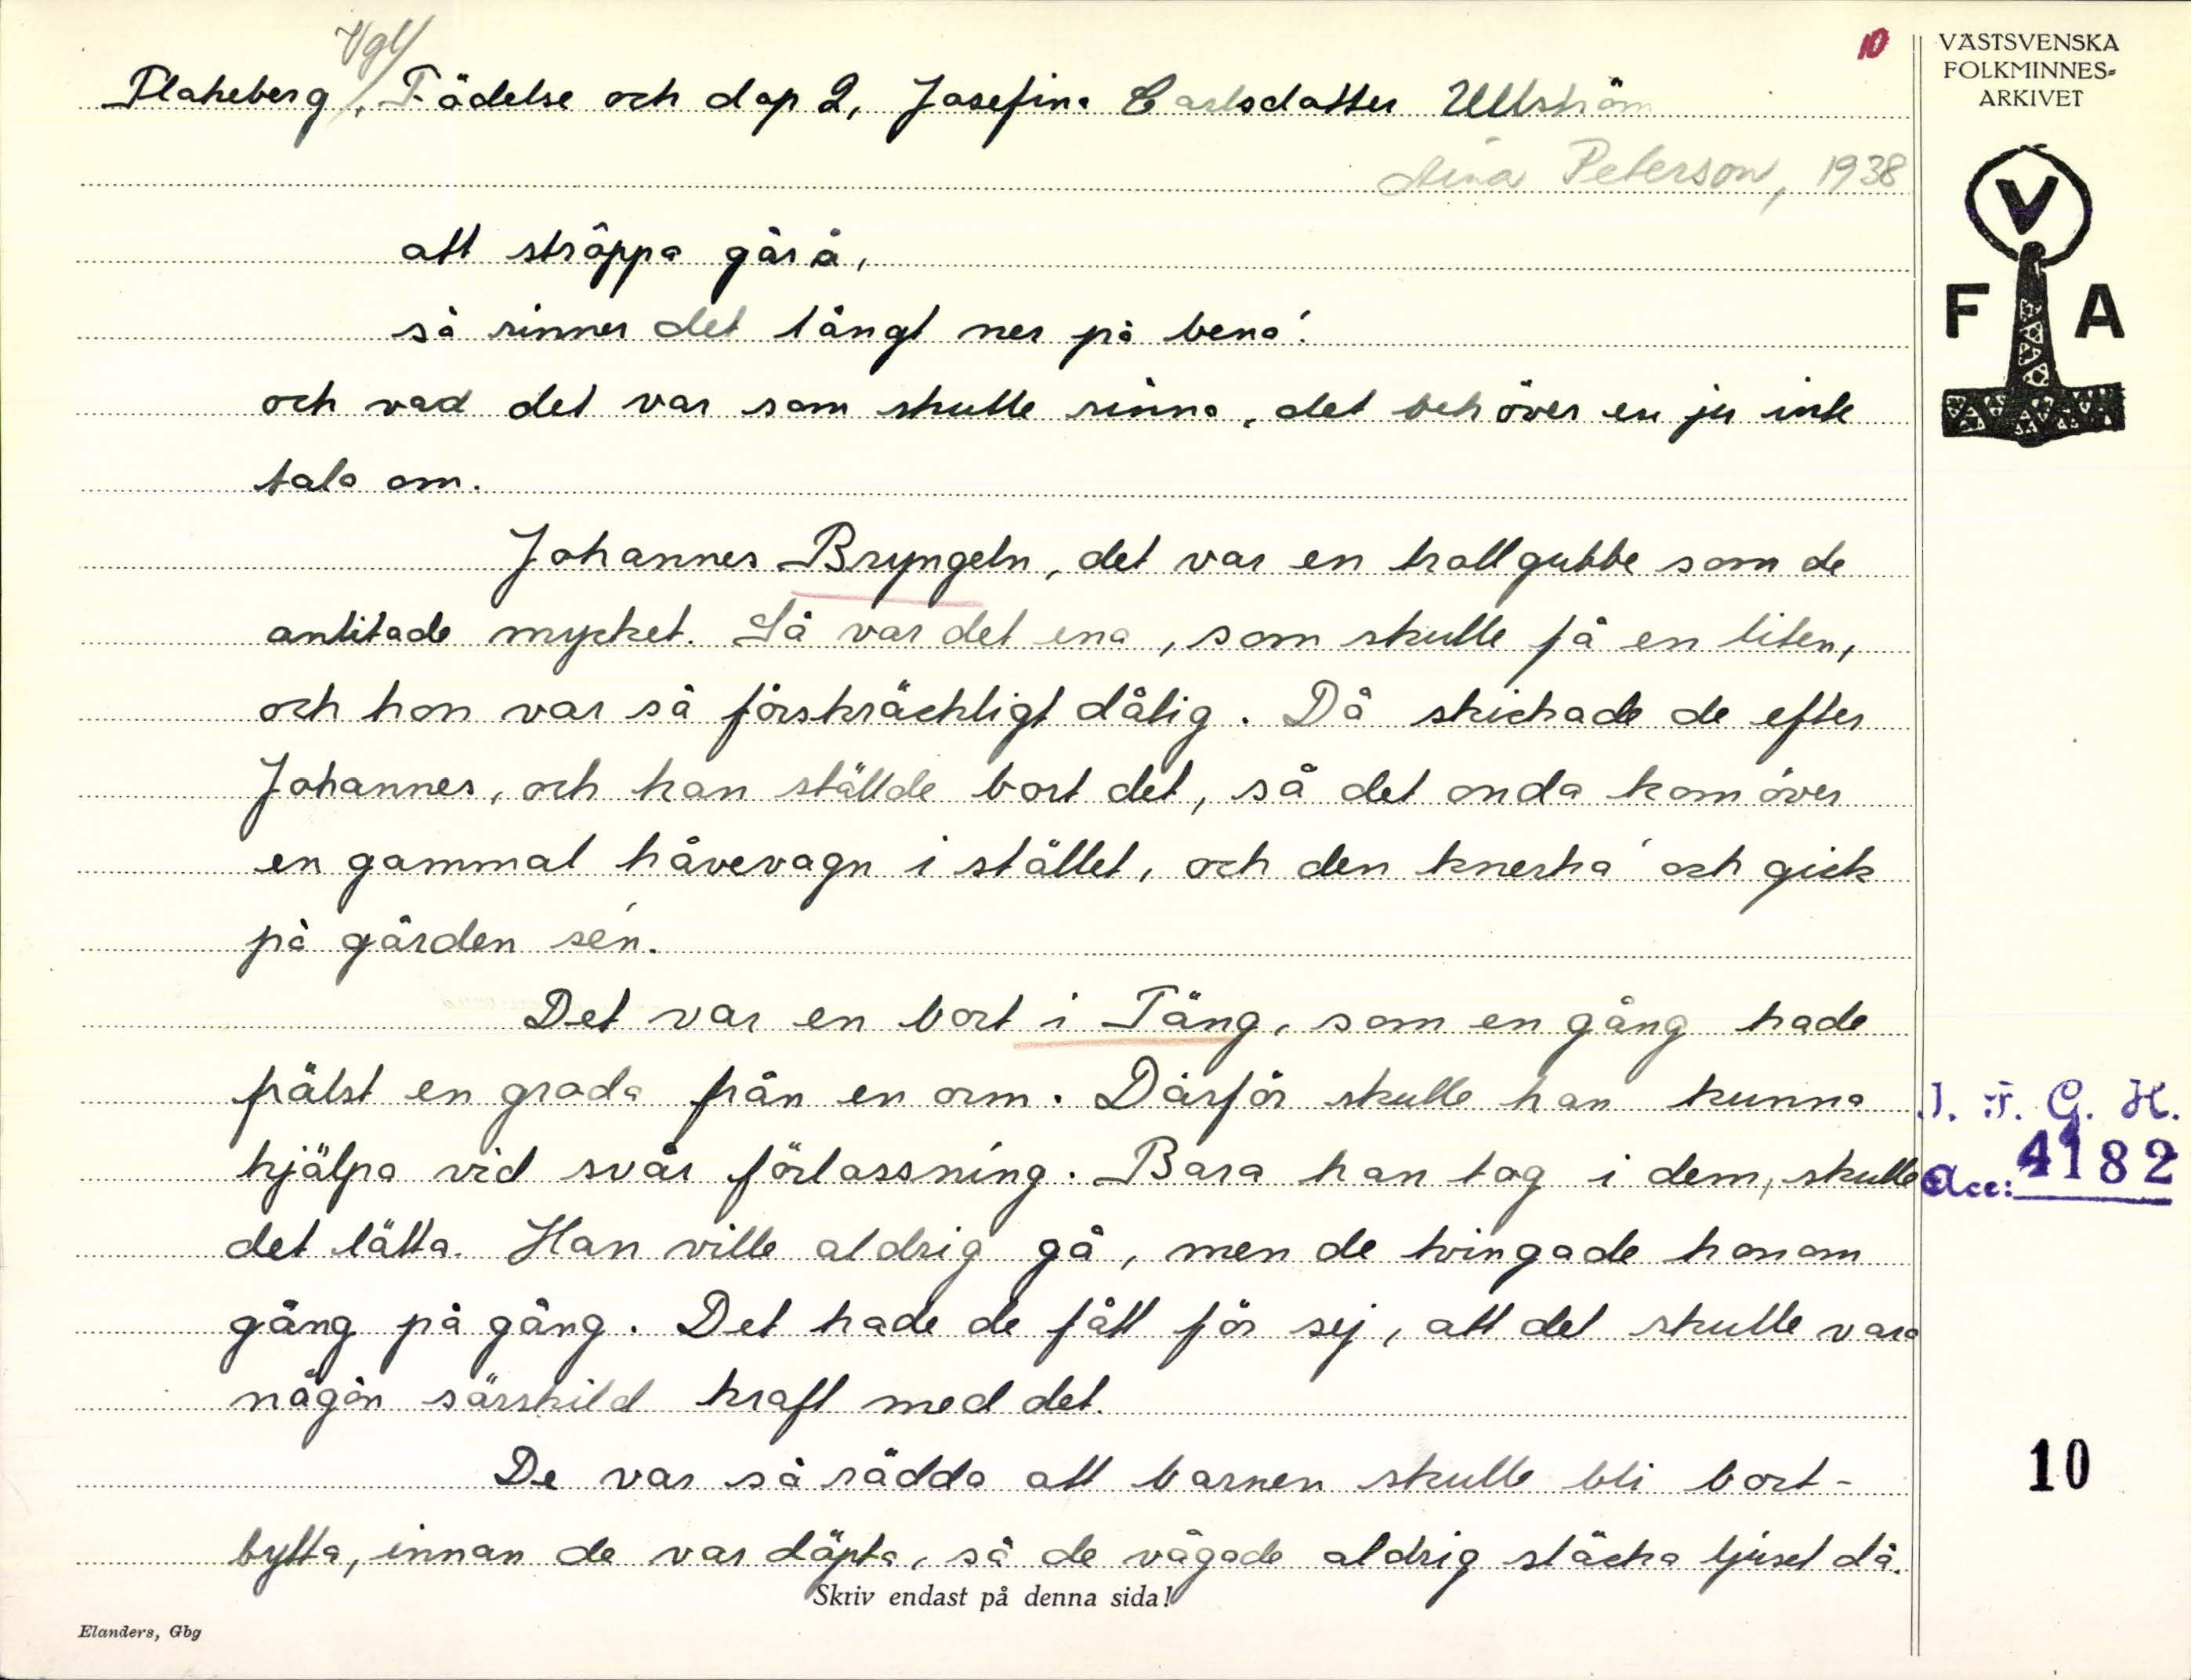 Vgl/
10
Flakeberg, Födelse och dop 2, Josefina Carlsdotter Ullström
Peterson, 1938
att ströppa går å,
så rinner det långt ner på bena!
och vad det var som skulle rinna, det behöver en ju inte
tala om.
Johannes Bryngeln, det var en trollgubbe som de
anlitade mycket. Så var det ena, som skulle få en liten,
och hon var så förskräckligt dålig. Då skickade de efter
Johannes, och han ställde bort det, så det onda kom över
en gammal håvevagn i stället, och den knerka' och gick
på gården sén.
Det var en bort i Täng, som en gång hade
frälst en groda från en orm. Därför skulle han kunna
hjälpa vid svår förlossning. Bara han tog i dem, skulle
det lätta. Han ville aldrig gå, men de tvingade honom
gång på gång. Det hade de fått för sej, att det skulle vara
någon särskild kraft med det.
De var så rädda att barnen skulle bli bort-
bytta, innan de var döpta, så de vågade aldrig släcka ljuset då.
Skriv endast på denna sida!
Elanders, Gbg
VÄSTSVENSKA
FOLKMINNES-
ARKIVET
V
F A
I. F. G. H.
Acc: 4182
10